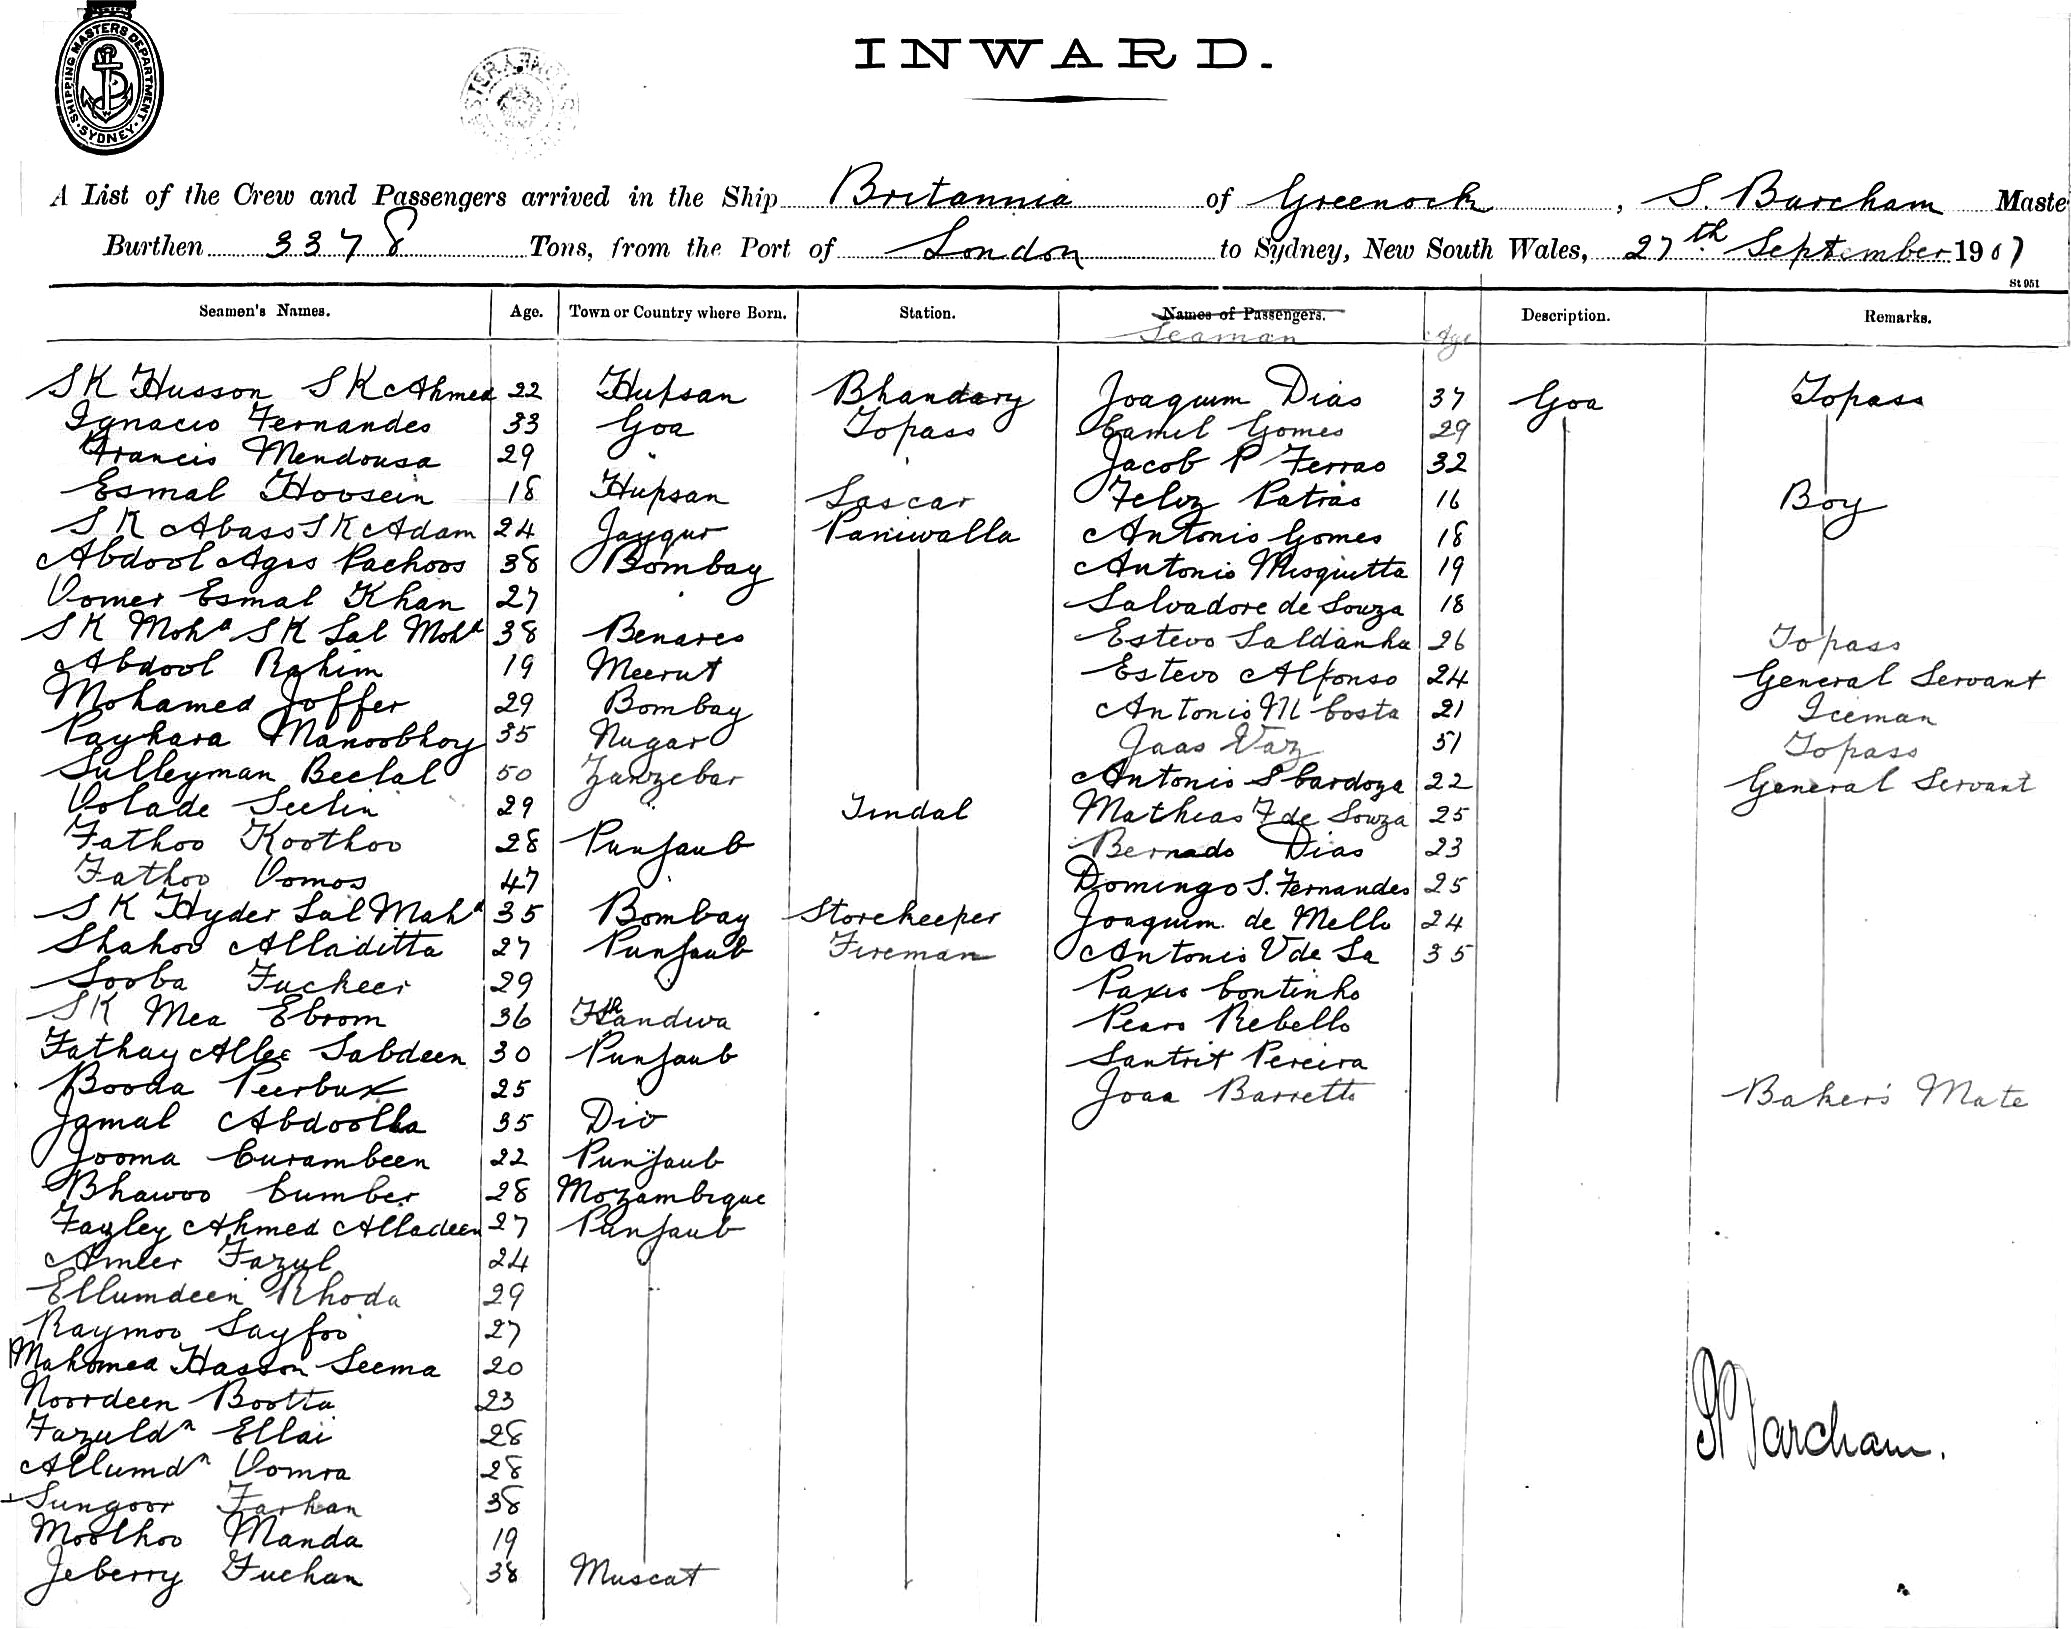 SHIPPING MASTERS DEPARTMENT
SYDNEY
INWARD.
A List of the Crew and Passengers arrived in the Ship Britannia of Greenock, S. Barcham Maste
Burthen 3378 Tons, from the Port of London to Sydney, New South Wales, 27th September 1907
St 051
Seamen's Names. Age. Town or Country where Born. Station. Names of Passengers. Description. Remarks.
Seaman Age
SK Husson SK Ahmed 22 Hupsan Bhandary Joaquim Dias 37 Goa Topass
Ignacio Fernandes 33 Goa Topass Camil Gomes 29
Francis Mendousa 29 " Jacob P Ferrao 32
Esmal Hoosein 18 Hupsan Lascar Feliz Patrao 16 Boy
SK Abass SK Adam 24 Jaygur Paniwalla Antonio Gomes 18
Abdool Agis Pachoos 38 Bombay Antonio Misquitta 19
Oomer Esmal Khan 27 Salvadore de Souza 18
SK Mohd SK Lal Mohd 38 Benares Estevo Saldanha 26 Topass
Abdool Rahim 19 Meerut Estevo Alfonso 24 General Servant
Mohamed Joffer 29 Bombay Antonio M Costa 21 Iceman
Payhara Manoobhoy 35 Nugar Jaas Vaz 51 Topass
Sulleyman Beelal 50 Zanzebar Antonio S Cardoza 22 General Servant
Volade Seelin 29 Tindal Mathias F de Souza 25
Fathoo Koothoo 28 Punjaub Bernado Dias 23
Fathoo Oomos 47 Domingo S. Fernandes 25
SK Hyder Lal Mahd 35 Bombay Storekeeper Joaquim de Mello 24
Shahoo Alladitta 27 Punjaub Fireman Antonio V de Sa 35
Sooba Fucheer 29 Paxis Continho
SK Mea Ebrom 36 Khandwa Pearo Rebello
Fathay Allee Sabdeen 30 Punjaub Santrit Pereira
Booda Peerbux 25 Joaa Barretto Baker's Mate
Jamal Abdoolla 35 Dio
Jooma Curambeen 22 Punjaub
Bhawoo Cumber 28 Mozambique
Fazley Ahmed Alladeen 27 Punjaub
Ameer Fazul 24
Ellumdeen Rhoda 29
Raymoo Sayfoo 27
Mahomed Hasson Seema 20
Noordeen Bootta 23
Fazuldn Ellai 28
Allumdn Oomra 28
Sungoor Farhan 38
Moolhoo Manda 19
Jeberry Fuchan 38 Muscat
S Barcham.